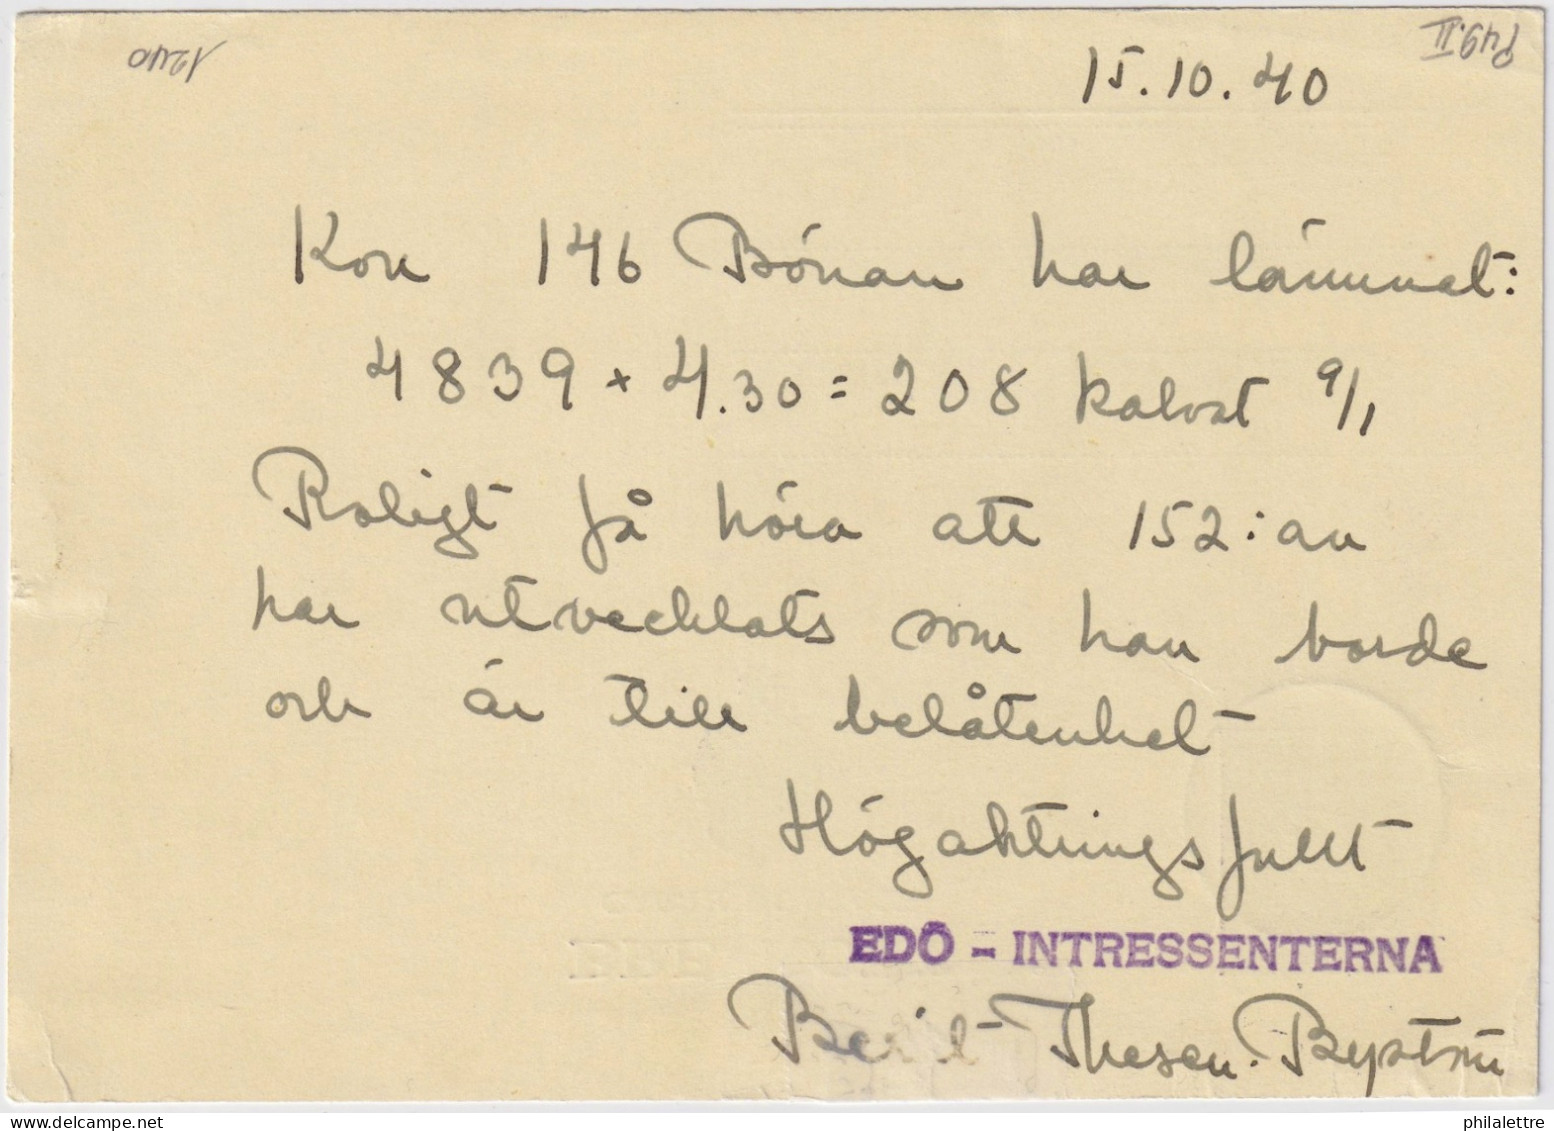 1240
P49.II
15.10.40
Kon 146 Bönan har lämnat:
4839 + 4.30 = 208 kalvat 9/1
Roligt få höra att 152:an
har utvecklats som han borde
och är till belåtenhet
Högaktningsfullt
EDÖ - INTRESSENTERNA
Berit Thesen. Byström
philalettre